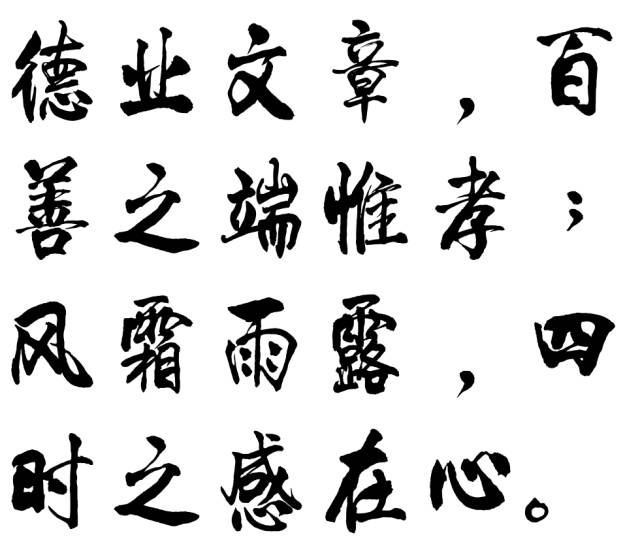 德业文章，百
善之端惟孝；
风霜雨露，四
时之感在心。